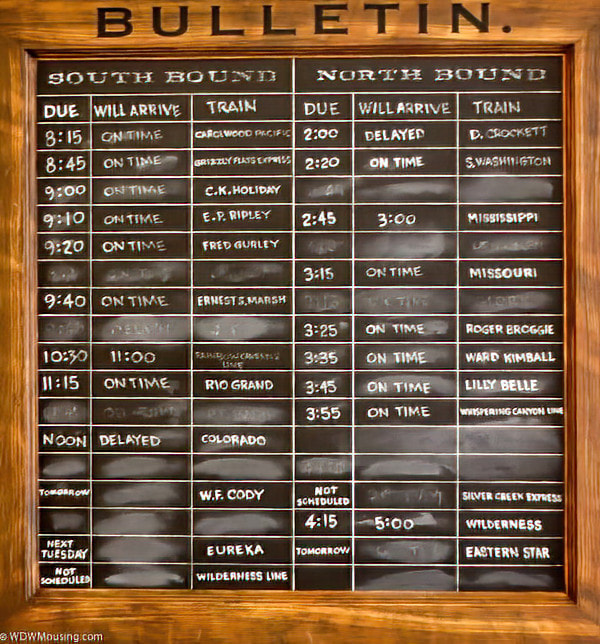 BULLETIN.
SOUTH BOUND NORTH BOUND
DUE WILL ARRIVE TRAIN DUE WILL ARRIVE TRAIN
8:15 ON TIME CAROLWOOD PACIFIC 2:00 DELAYED D. CROCKETT
8:45 ON TIME GRIZZLY FLATS EXPRESS 2:20 ON TIME S.WASHINGTON
9:00 ON TIME C.K. HOLIDAY
9:10 ON TIME E.P. RIPLEY 2:45 3:00 MISSISSIPPI
9:20 ON TIME FRED GURLEY
3:15 ON TIME MISSOURI
9:40 ON TIME ERNEST S. MARSH
3:25 ON TIME ROGER BROGGIE
10:30 11:00 RAINBOW CAVERNS LINE 3:35 ON TIME WARD KIMBALL
11:15 ON TIME RIO GRAND 3:45 ON TIME LILLY BELLE
3:55 ON TIME WHISPERING CANYON LINE
NOON DELAYED COLORADO
TOMORROW W.F. CODY NOT SCHEDULED SILVER CREEK EXPRESS
4:15 5:00 WILDERNESS
NEXT TUESDAY EUREKA TOMORROW EASTERN STAR
NOT SCHEDULED WILDERNESS LINE
© WDWMousing.com